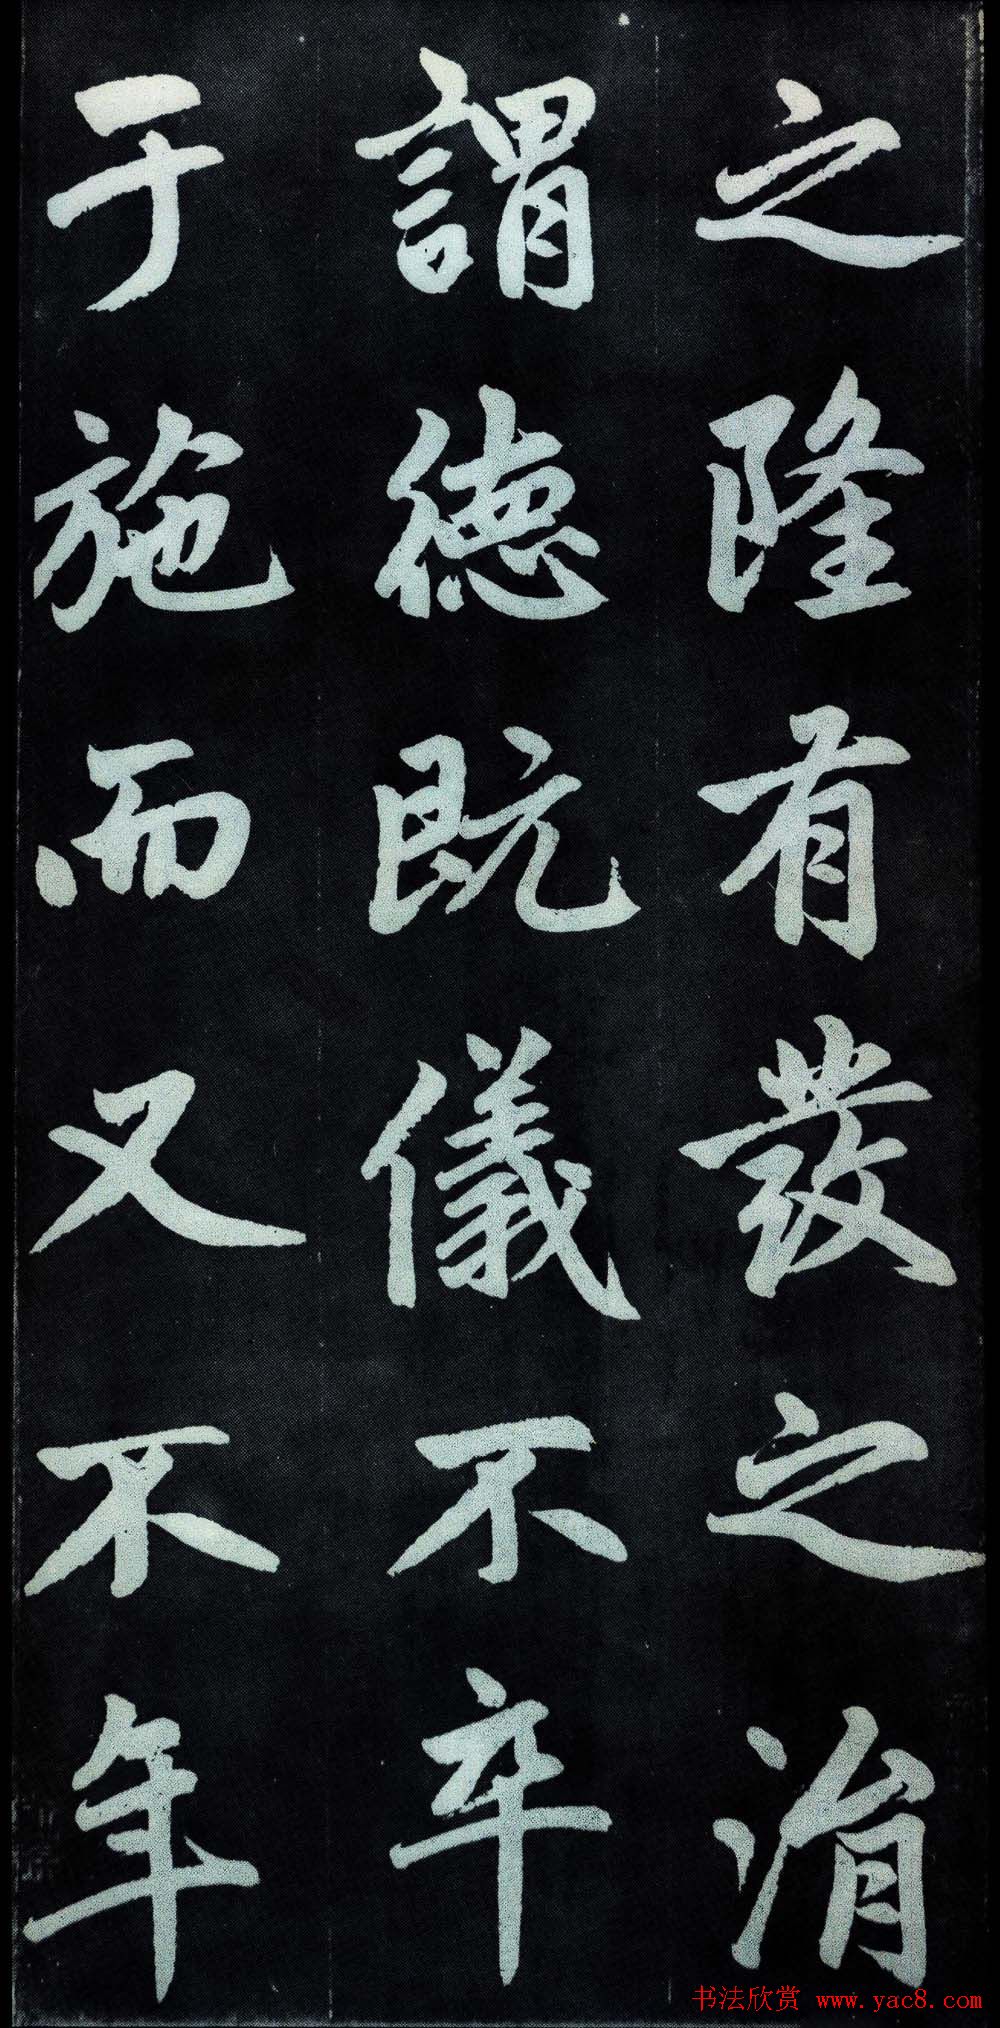 之隆有發之涓
謂德既儀不卒
于施而又不年
书法欣赏 www.yac8.com